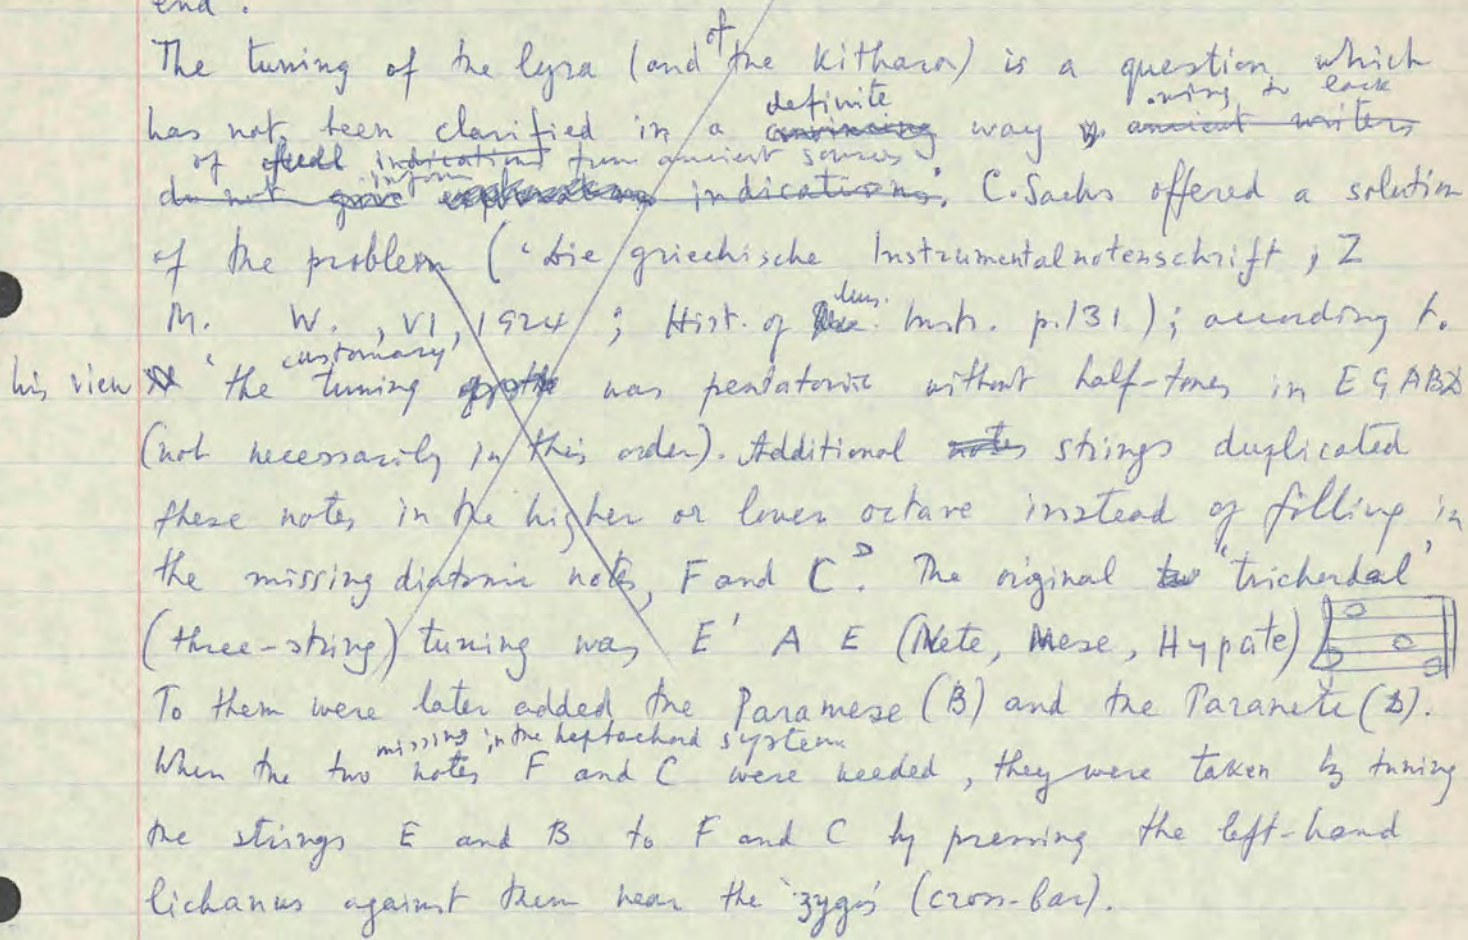 end.
The tuning of the lyra (and of the kithara) is a question which
has not been clarified in a definite way owing to lack
of indication from ancient sources
do not give indications. C. Sachs offered a solution
of the problem ('Die griechische Instrumentalnotenschrift, Z
M. W., VI, 1924; Hist. of Mus. Instr. p. 131); according to
his view 'the customary tuning was pentatonic without half-tones in E G A B D
(not necessarily in this order). Additional notes strings duplicated
these notes in the higher or lower octave instead of filling in
the missing diatonic notes, F and C'. The original 'trichordal'
(three-string) tuning was E' A E (Nete, Mese, Hypate)
To them were later added the Paramese (B) and the Paranete (D).
missing in the heptachord system
When the two notes F and C were needed, they were taken by tuning
the strings E and B to F and C by pressing the left-hand
lichanus against them near the 'zygos' (cross-bar).